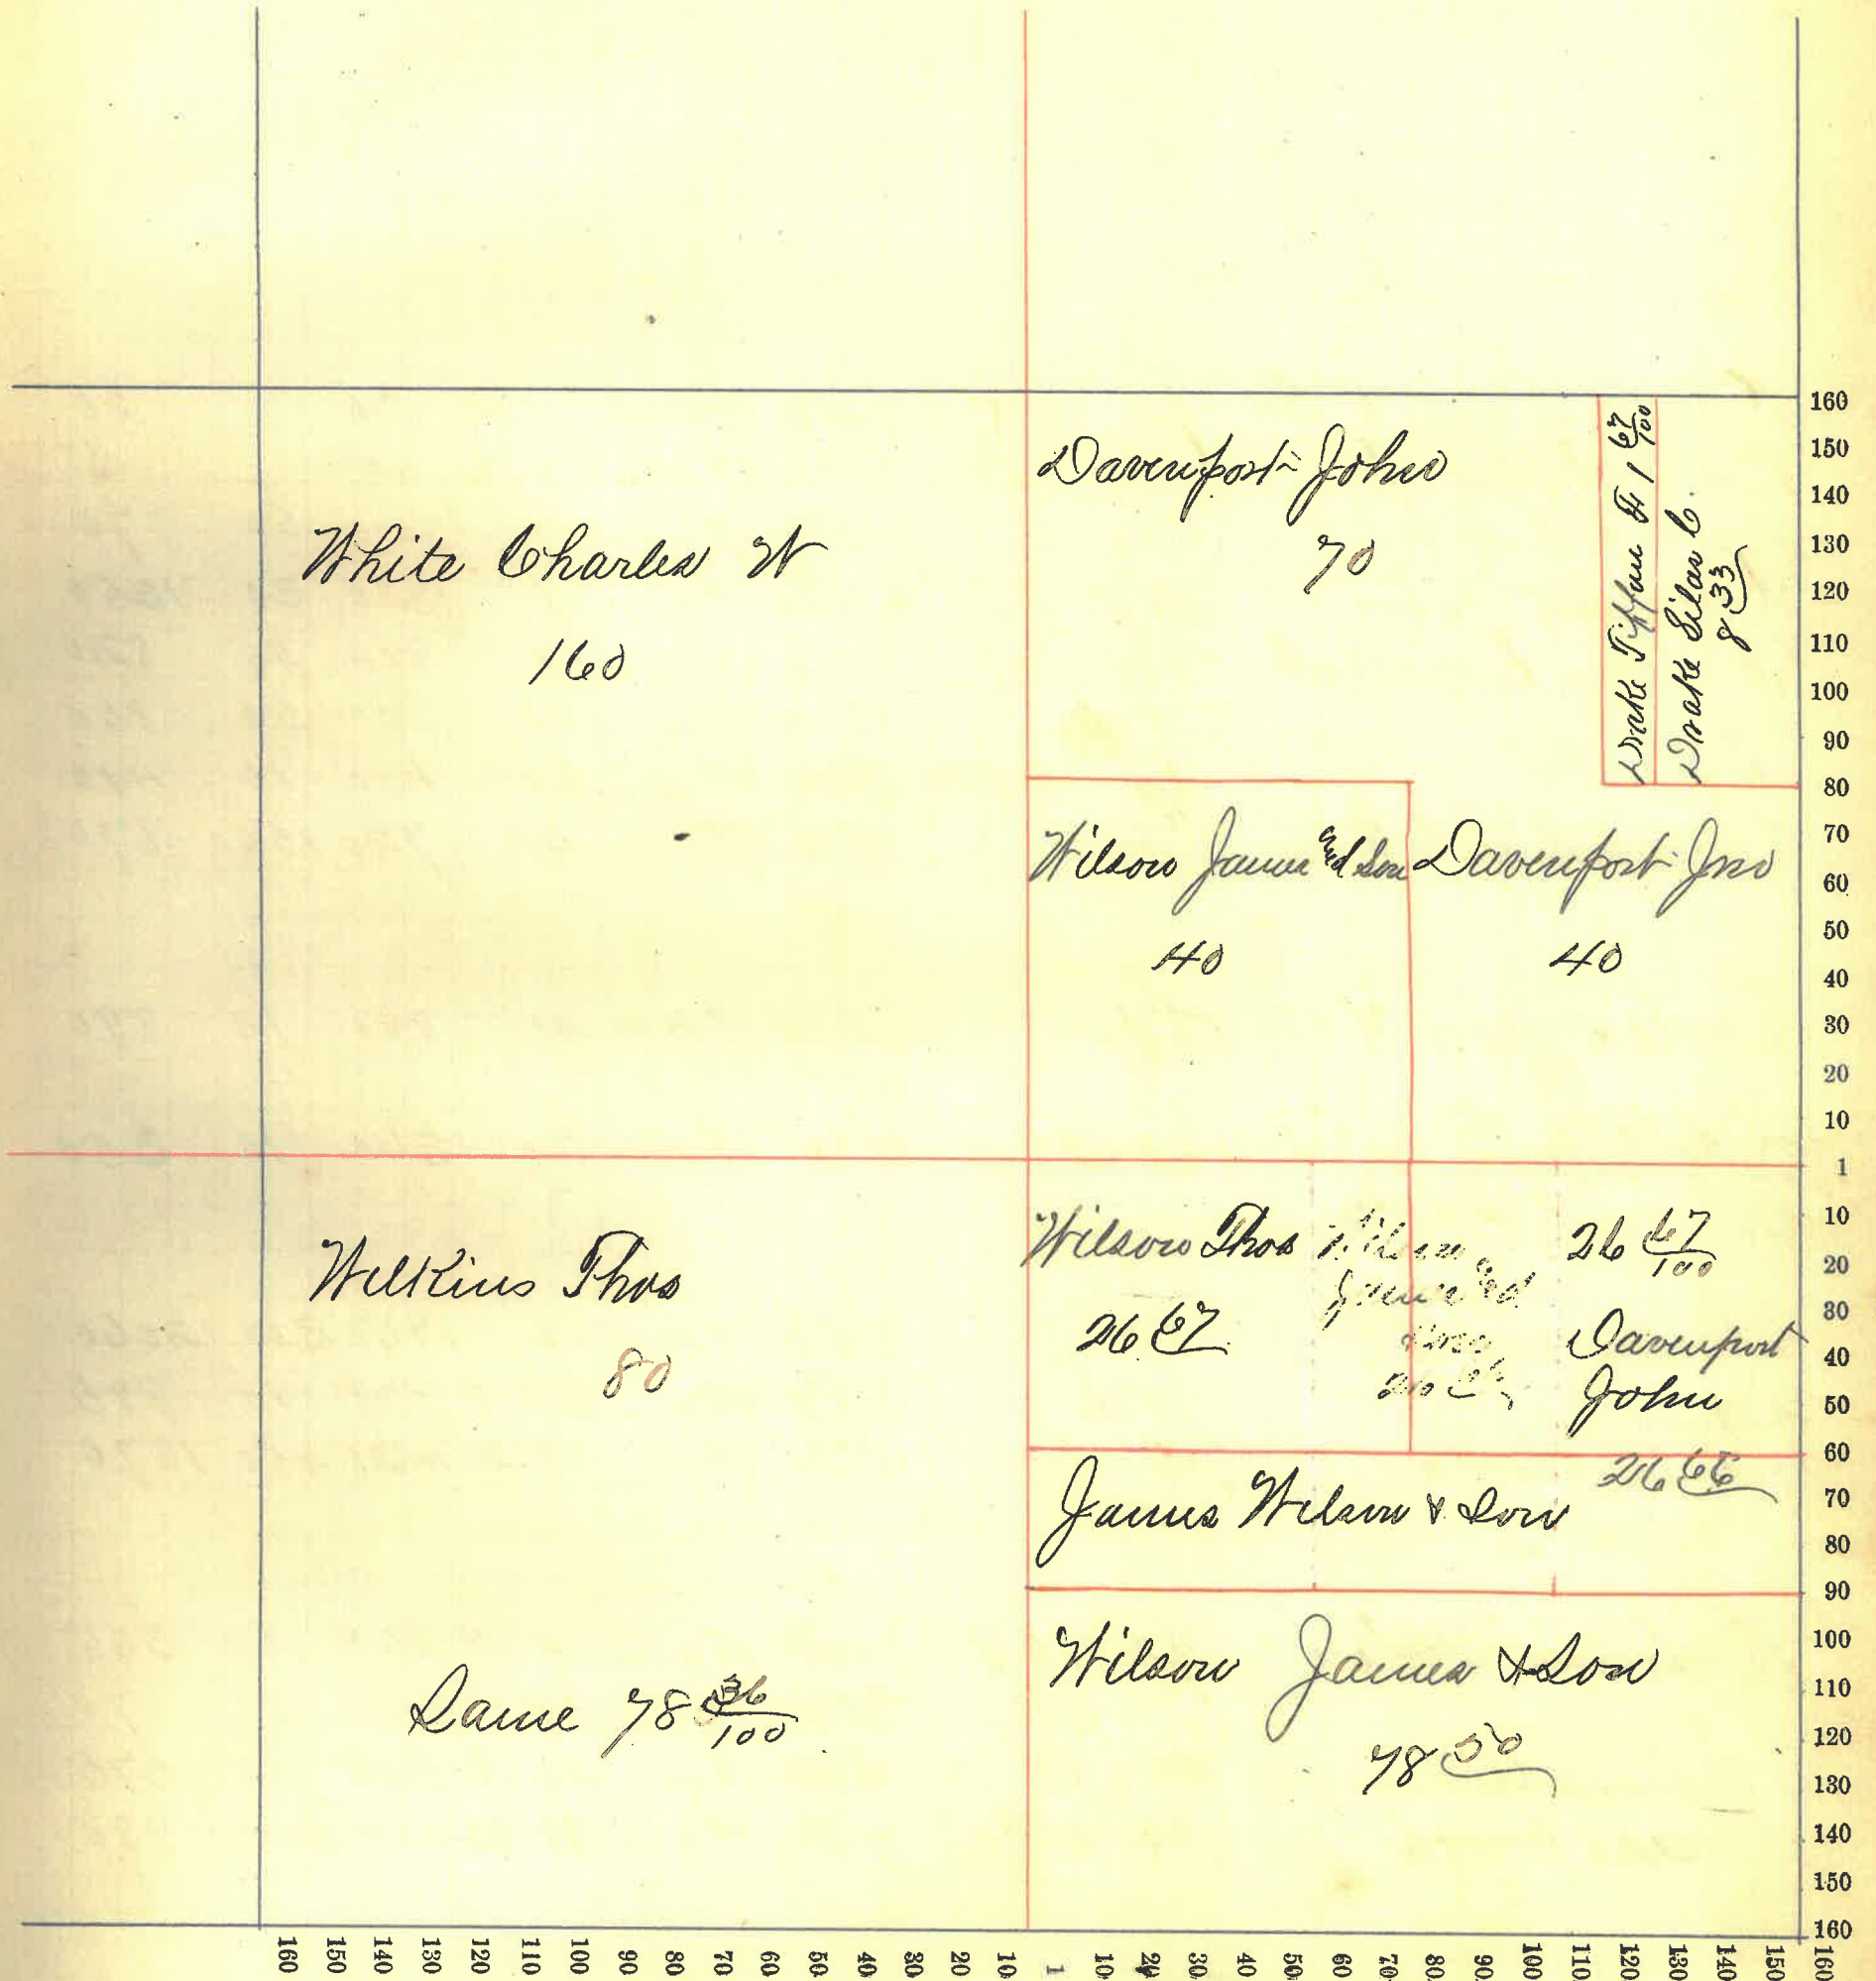 White Charles W
160
Davenport John
70
Drake Tiffau H 1 67/100
Drake Silas C.
8 33
Wilson James and Son
40
Davenport Jno
40
Wilkins Thos
80
Same 78 36/100
Wilson Thos
26 67
Wilson
James and
Son
26 67/100
Davenport
John
26 66
James Wilson & Son
Wilson James & Son
78 50
160
150
140
130
120
110
100
90
80
70
60
50
40
30
20
10
1
10
20
30
40
50
60
70
80
90
100
110
120
130
140
150
160
160 150 140 130 120 110 100 90 80 70 60 50 40 30 20 10 1 10 20 30 40 50 60 70 80 90 100 110 120 130 140 150 160